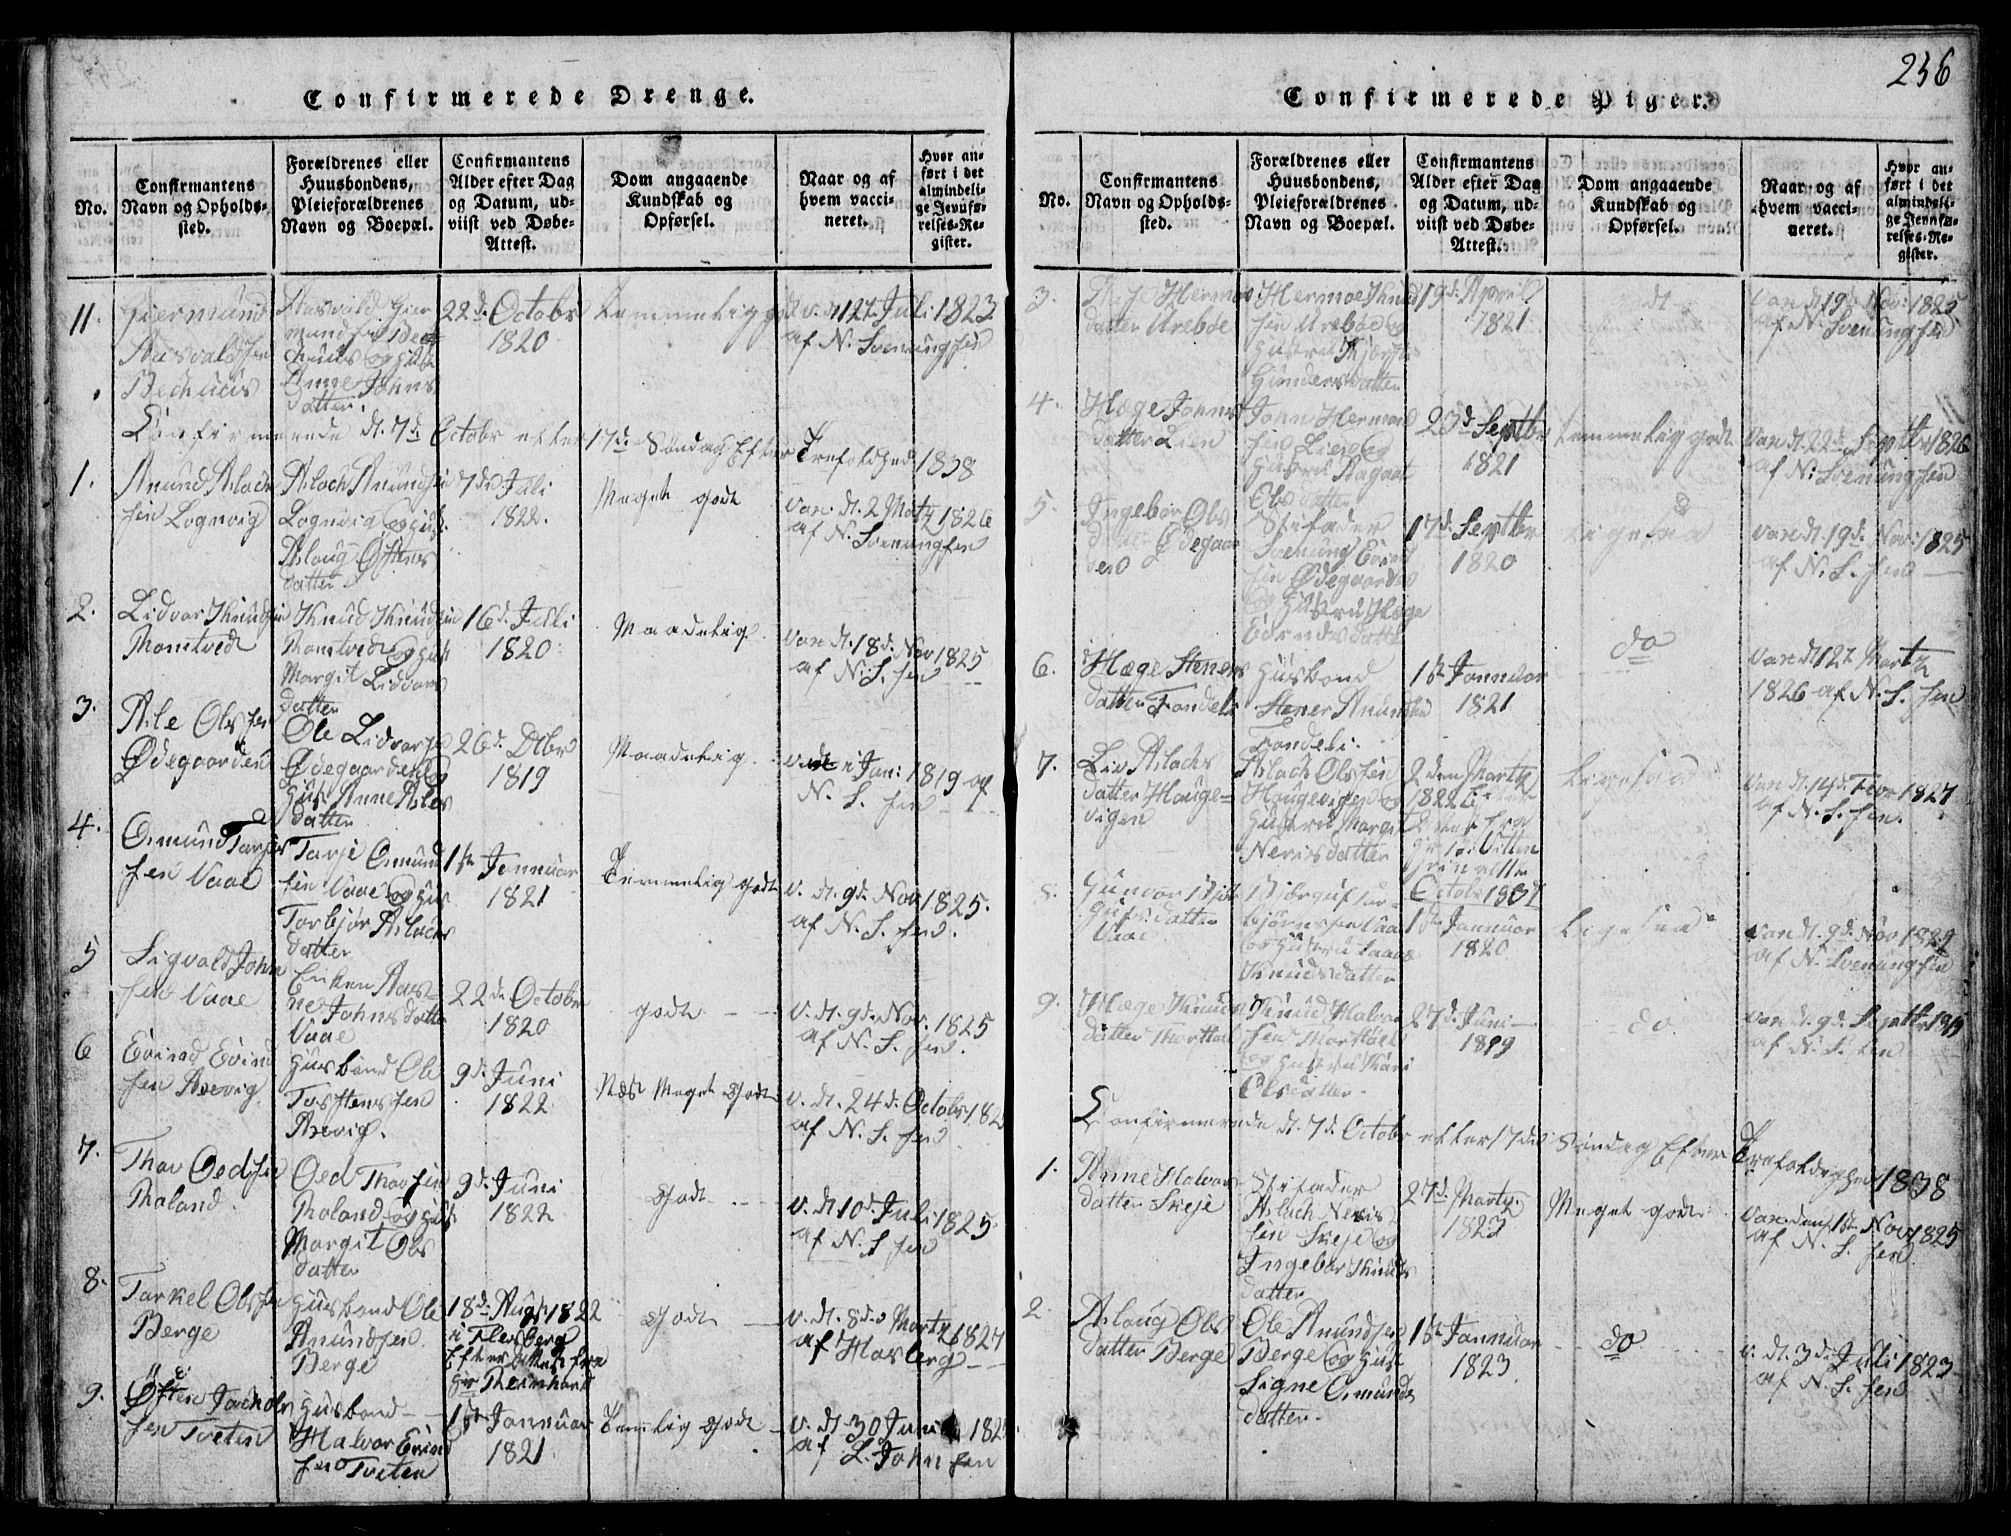 236
Confirmerede Drenge.
No.
Confirmantens
Navn og Opholds-
sted.
Forældrenes eller
Huusbondens,
Pleieforældrenes
Navn og Boepæl.
Confirmantens
Alder efter Dag
og Datum, ud-
viist ved Døbe-
Attest.
Dom angaaende
Kundskab og
Opførsel.
Naar og af
hvem vacci-
neret.
Hvor an-
ført i det
almindeli-
ge Jevnfø-
relses-Re-
gister.
11.
Giermund
Aasvaldsen
Bechuus
Aasvald Gier
mundsen Bec
huus og Hust
Anne Johns
datter.
22d. Octobr
1820
Temmelig g
v. dt 12t. Juli 1823
af N. Svenungsen
Confirmerede dt. 7d. Octobr etter 17d. Søndag Efter Trefoldhed 1838
1.
Anund Aslach
sen Lognvig
Aslach Anundsen
Lognvig og Hust.
Aslaug Østens
datter
7de Juli
1822.
Meget godt
van. dt. 2 Martz 1826
af N. Svenungsen
2.
Lidvor Knudsen
Romtvedt
Knud Knudsen
Romtvedt og Hust
Margit Lidvors
datter
16d. Juli
1820.
Maadelig
van dt. 18d. Nov 1825
af N. S. sen
3.
Asle Olsen
Ødegaarden
Ole Lidvorsen
Ødegaarden og
Hust Anne Asles
datter
26d. Dbr
1819
Maadelig
i Jan: 1819 af
N. S. sen
4.
Osmund Tarjes
sen Vaae
Tarje Osmund
sen Vaae og Hus
Torbjør Aslachs
datter
1ste Jannuar
1821
Temmelig godt
v. dt. 9d. Nov 1825.
af N. S. sen.
5
Sigvald John
sen Vaae
Enken Aas-
ne Johnsdatter
Vaae
22d. Octobr
1820
godt
v. dt. 9d. Nov. 1825
af N. S. sen.
6
Eivind Eivind
sen Aasvig
Husbond Ole
Tostensen
Aasvig.
9d. Juni
1822
Næst Meget Godt
v. dt. 24d. Octobr 182
af N. S. sen
7.
Thov Oedsen
Roland
Oed Thovsen
Roland og Hust
Margit Ols
datter
9d. Juni
1822
Godt
v. dt 10d. Juli 1825.
af N. S sen
8.
Tarkel Olsen
Berge
Husbond Ole
Anundsen
Berge
18d. Augst 1822
i Flesberg
Efter Attest fra
Hr Theimhard
Godt
v. dt. 8do Martz 1827
af Hasberg
9.
Østen Jachob
sen Tveten
Husbond
Halvor Eivind
sen Tveten
1ste Jannuar
1821
Temlig Godt
v. dt 30 Juni 182
af L. Johnsen
Confirmerede Piger.
No.
Confirmantens
Navn og Opholds-
sted.
Forældrenes eller
Huusbondens,
Pleieforældrenes
Navn og Boepæl.
Confirmantens
Alder efter Dag
og Datum, ud-
viist ved Døbe-
Attest.
Dom angaaende
Kundskab og
Opførsel.
Naar og af
hvem vacci-
neret.
Hvor an-
ført i det
almindeli-
ge Jevnfø-
relses-Re-
gister.
3.
Hermo
datter Urebøe
Hermoe Knud
sen Urebøe og
Hustru Kjersti
Gunders datter
19d. April
1821
godt
van dt 19d. Nov: 1825
af N. Svenungsen
4.
Hæge Johns
datter Lien
John Hermond
sen Lien og
Hustru Aagaat
Ols datter
23d. Septbr
1821
Temmelig godt
van dt. 22d. Septbr 1826
af N: Svenungsen
5.
Ingebør Ols
datter Ødegaar
den
Stifader
Svenung Eivind
sen Ødegaarden
og Hustru Hæge
datter
17d. Septbr
1820
Ligesaa
van dt. 19d. Nov: 1825
af N. S. sen
6.
Hæge Steners
datter Fandeli
Husbond
Stener Anundsen
Fandeli.
1ste Jannuar
1821
do
van dt 12t Martz
1826 af N. S. sen
7.
Liv Aslachs
datter Hauge-
vigen
Aslach Olsen
Haugevigen og
Hustru Margit
Neris datter
2den Martz
1822 Efter
Attest fra
Octobr 1837
Ligesaa
van dt. 14d. Febr 1827
af N. S. sen.
8.
Gunvor Bjør
gufs datter
Vaae
Bjørguf Tor-
bjørnsen Vaae
og Hustru Laave
Knudsdatter
1ste Jannuar
1820
Ligesaa
van dt. 9d. Nov 1829
af N. Svenungsen
9.
Hæge Knuds
datter Mortføll
Knud Halvor
sen Mortføll
og Hustru Kari
Olsdatter.
27d. Juni
1819
do
van dt. 9d. Septbr 1819
af N. S. sen
Confirmerede dt. 7d. Octobr etter 17de Søndag Efter Trefoldighed 1838
1.
Anne Halvors
datter Skeje
Stifader
Aslach Neris
sen Skeje og
Ingebør Knuds
datter
27d. Martz.
1823
Meget godt
van. den 1ste Nov 1825
af N. S. sen
2.
Aslaug Ols
datter Berge
Ole Anundsen
Berge og Hust
Signe Osmunds
datter.
1ste Jannuar
1823.
do
v. dt. 3d. Juli 1823
af N. S. sen